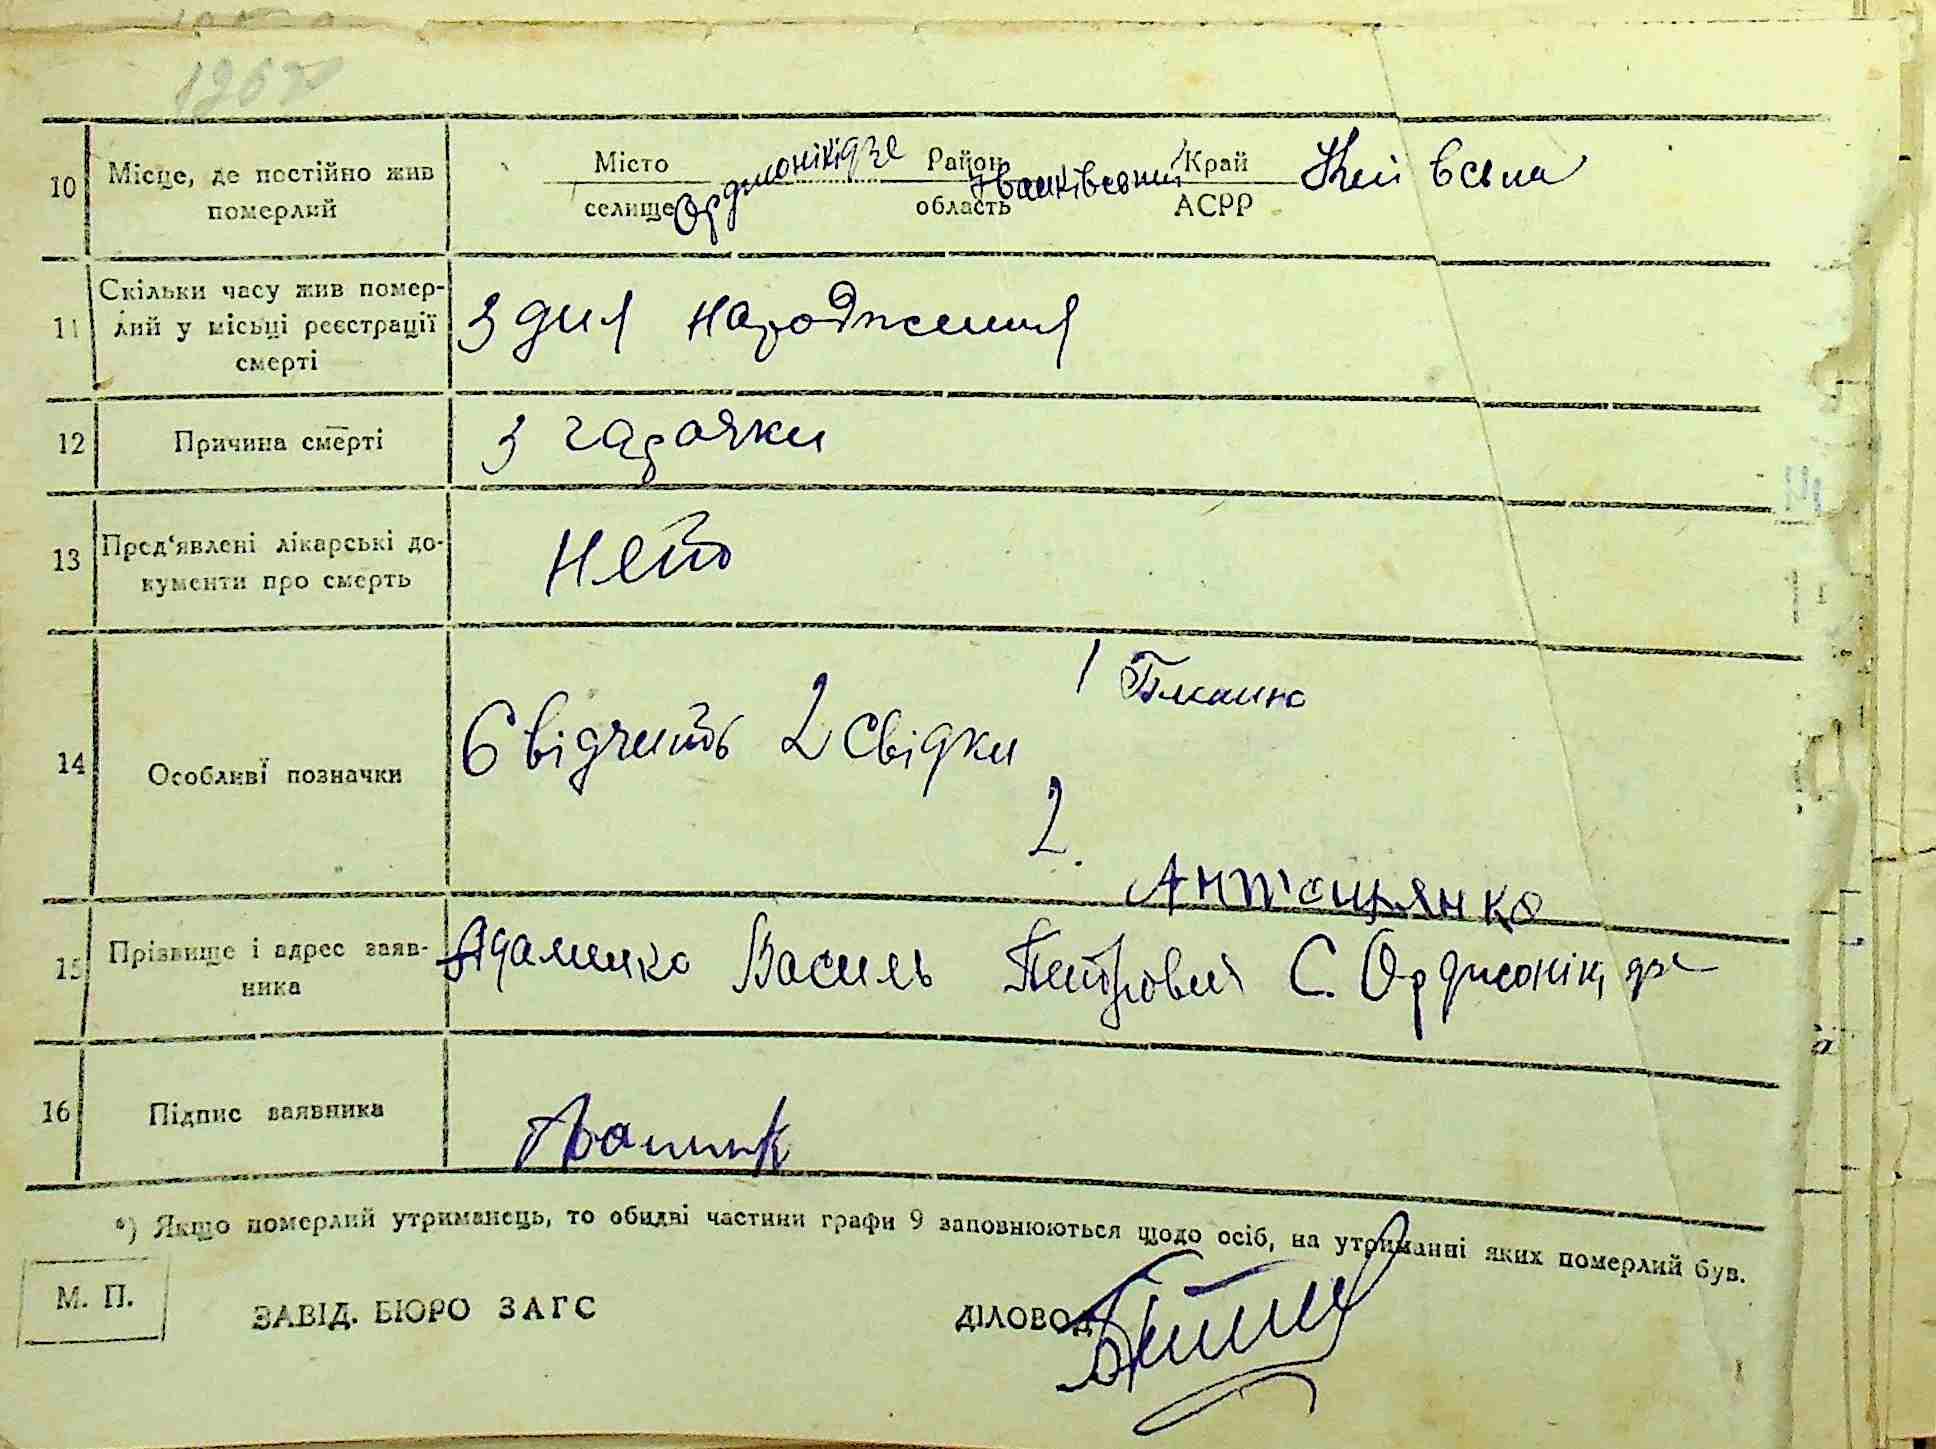 10 Місце, де постійно жив
померлий
Місто
селище Орджонікідзе Район
область Іванківський Край
АСРР Київська
11 Скільки часу жив помер-
лий у місьці реєстрації
смерті
З дня народження
12 Причина смерті
З гарячки
13 Пред'явлені лікарські до-
кументи про смерть
Нето
14 Особливі позначки
Свідчить 2 свідки
1
2.
15 Прізвище і адрес заяв-
ника
Адаменко Василь Петрович С. Орджонікідзе
16 Підпис заявника
*) Якщо померлий утриманець, то обидві частини графи 9 заповнюються щодо осіб, на утриманні яких померлий був.
М. П.
ЗАВІД. БЮРО ЗАГС
ДІЛОВОД